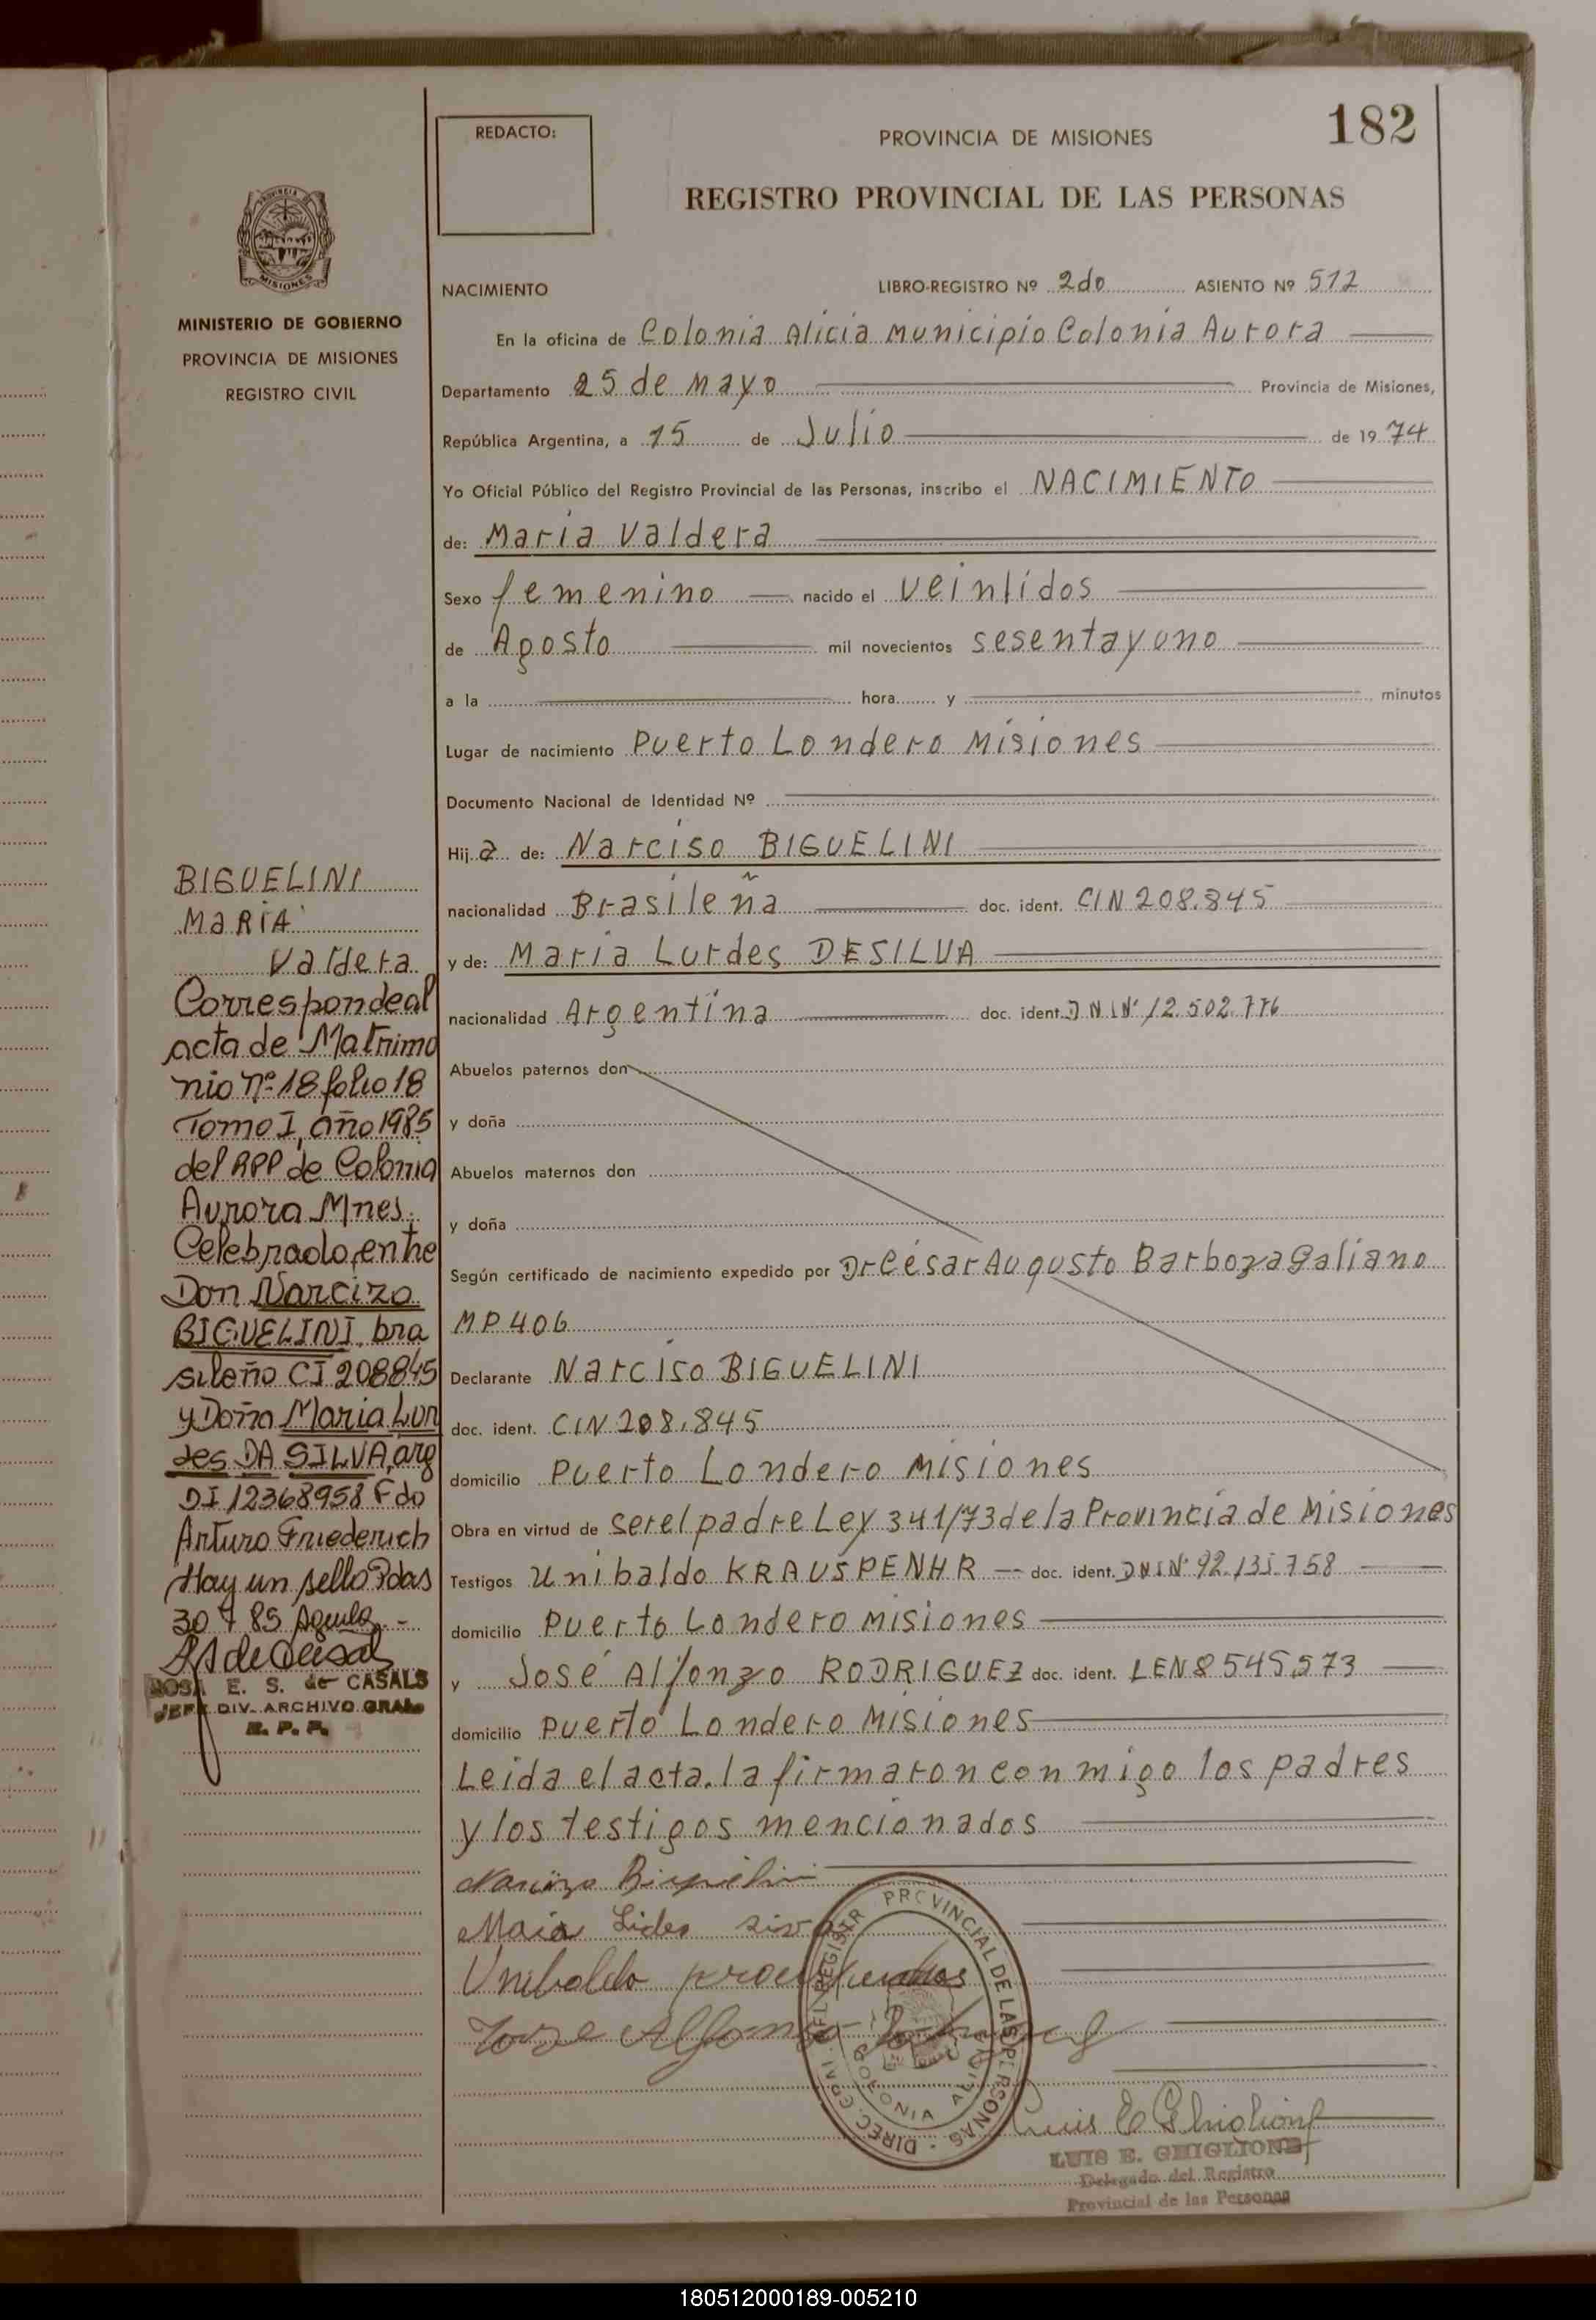 182
REDACTO:
PROVINCIA DE MISIONES
REGISTRO PROVINCIAL DE LAS PERSONAS
MISIONES
MINISTERIO DE GOBIERNO
PROVINCIA DE MISIONES
REGISTRO CIVIL
NACIMIENTO LIBRO-REGISTRO Nº 2do ASIENTO Nº 512
En la oficina de Colonia Alicia Municipio Colonia Aurora
Departamento 25 de Mayo Provincia de Misiones,
República Argentina, a 15 de Julio de 1974
Yo Oficial Público del Registro Provincial de las Personas, inscribo el NACIMIENTO
de: Maria Valdera
Sexo femenino nacido el veintidos
de Agosto mil novecientos sesentayuno
a la hora y minutos
Lugar de nacimiento Puerto Londero Misiones
Documento Nacional de Identidad Nº
Hija de: Narciso BIGUELINI
nacionalidad Brasileña doc. ident. CIN 208.845
y de: Maria Lurdes DESILVA
nacionalidad Argentina doc. ident. DNIN° 12.502.776
Abuelos paternos don
y doña
Abuelos maternos don
y doña
Según certificado de nacimiento expedido por Dr César Augusto Barboza galiano
MP 406
Declarante Narciso BIGUELINI
doc. ident. CIN 208.845
domicilio Puerto Londero Misiones
Obra en virtud de ser el padre Ley 341/73 de la Provincia de Misiones
Testigos Unibaldo KRAUSPENHR doc. ident. DNIN° 92.135.758
domicilio Puerto Londero Misiones
y José Alfonzo RODRIGUEZ doc. ident. LEN 8545573
domicilio Puerto Londero Misiones
Leida el acta. la firmaron conmigo los padres
y los testigos mencionados
BIGUELINI
MARIA
Valdera
Corresponde al
acta de Matrimo
nio nº 18 folio 18
Tomo I, año 1985
del RPP de Colonia
Aurora Mnes.
Celebrado entre
Don Narcizo
BIGUELINI, bra
sileño CI 208845
y Doña Maria Lur
des DA SILVA, arg
DI 12368958 Fdo
Arturo Friederich
Hay un sello Pdas
30 7 85
ROSA E. S. de CASALS
JEFE DIV. ARCHIVO GRAL
R. P. P.
Maia Lides
Unibaldo
Jose Alfonso
REGISTR PROVINCIAL DE LAS PERSONAS
DIREC.
COLONIA ALICIA
Luis E Ghiglione
LUIS E. GHIGLIONE
Delegado del Registro
Provincial de las Personas
180512000189-005210